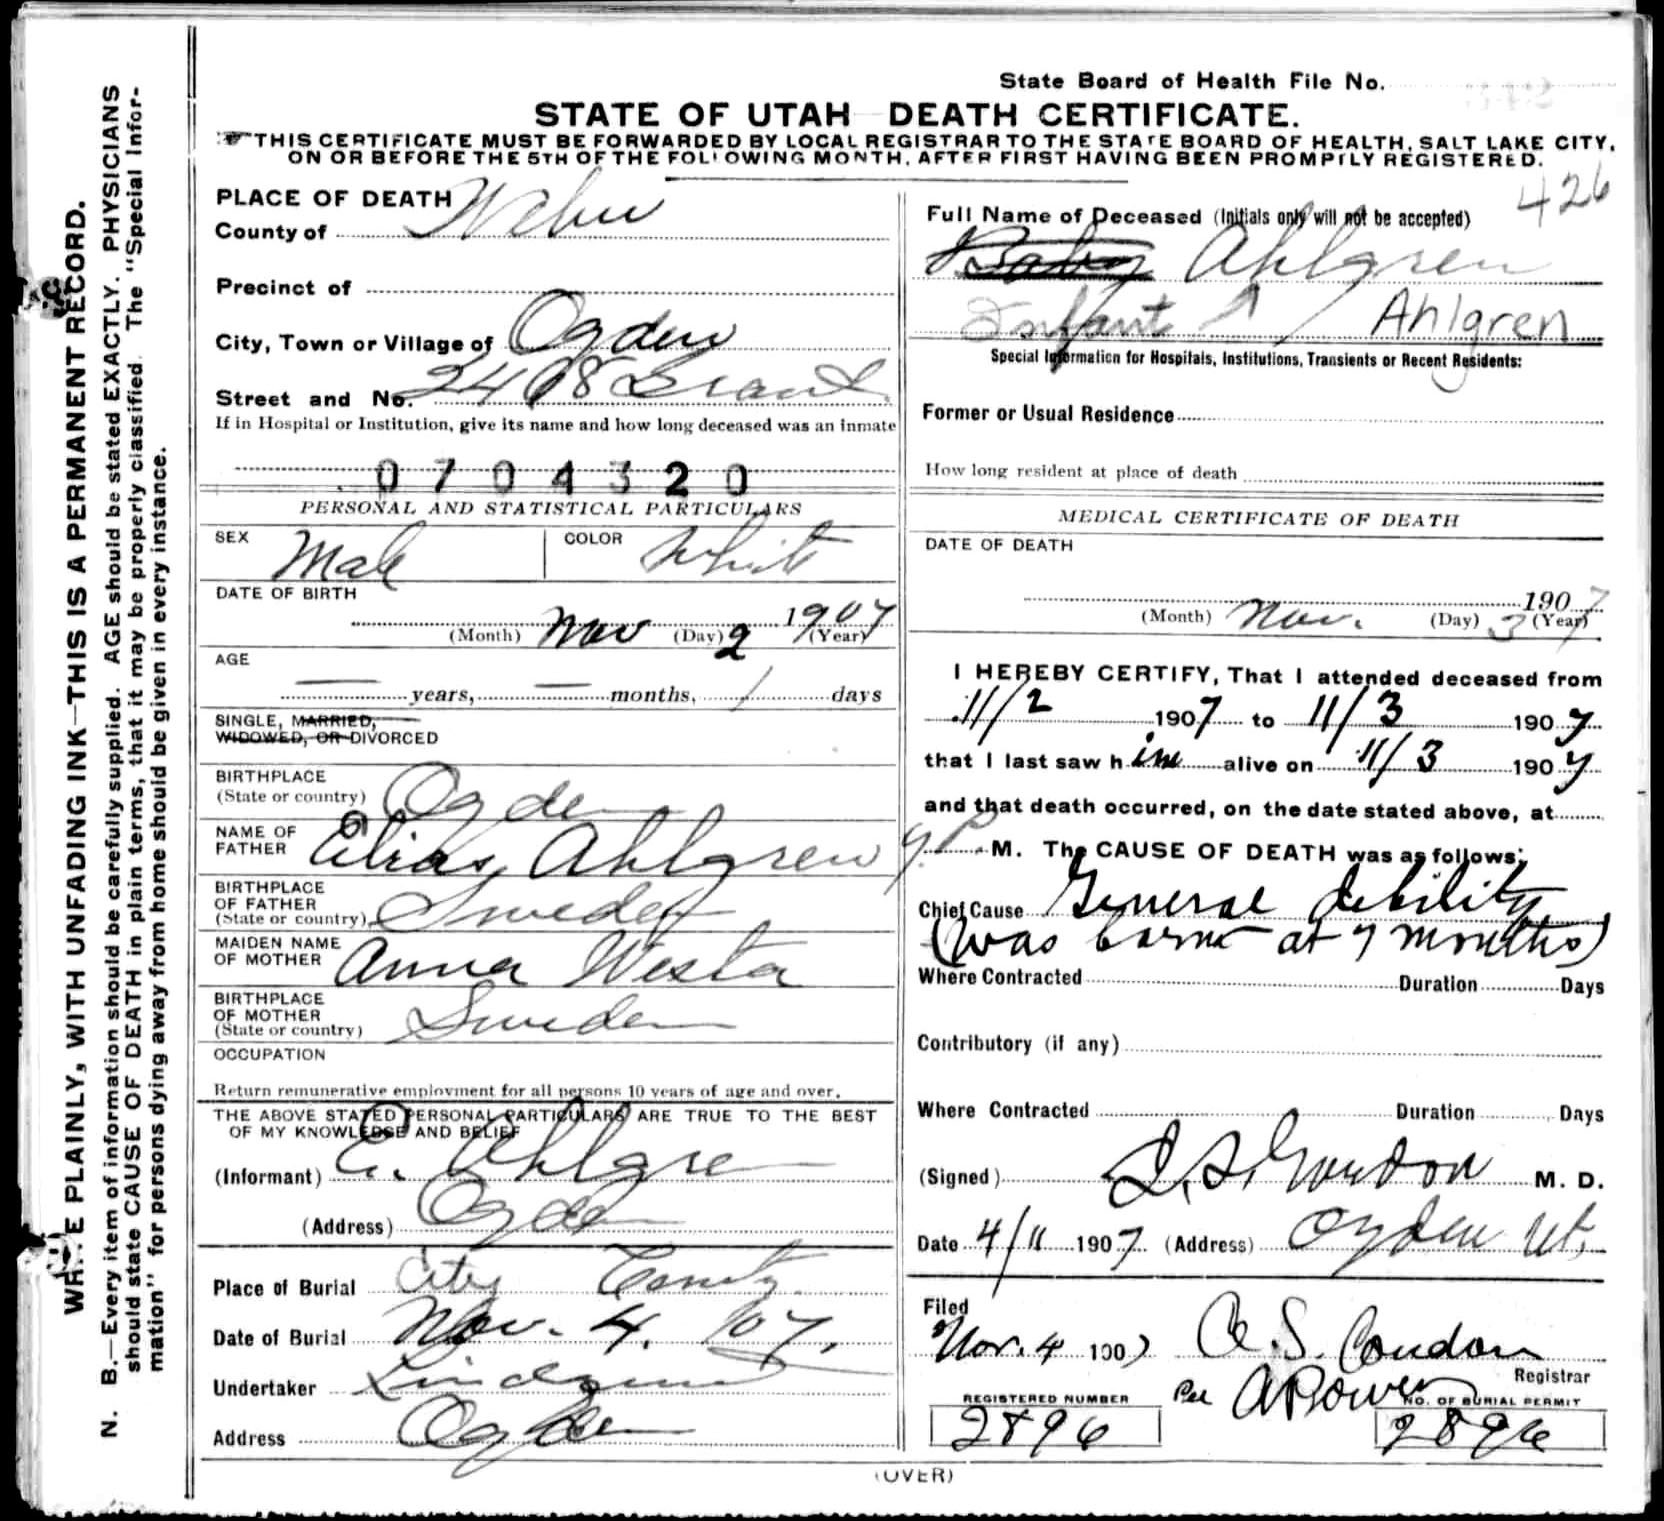 State Board of Health File No.
STATE OF UTAH DEATH CERTIFICATE.
THIS CERTIFICATE MUST BE FORWARDED BY LOCAL REGISTRAR TO THE STATE BOARD OF HEALTH, SALT LAKE CITY,
ON OR BEFORE THE 5TH OF THE FOLLOWING MONTH, AFTER FIRST HAVING BEEN PROMPTLY REGISTERED.
426
PLACE OF DEATH
County of Weber
Precinct of
City, Town or Village of Ogden
Street and No. 2468 Grant
If in Hospital or Institution, give its name and how long deceased was an inmate
0704320
PERSONAL AND STATISTICAL PARTICULARS
SEX Male COLOR White
DATE OF BIRTH
(Month) Nov (Day) 2 1907 (Year)
AGE
— years, — months, 1 days
SINGLE, MARRIED,
WIDOWED, OR DIVORCED
BIRTHPLACE
(State or country) Ogden
NAME OF
FATHER Elias Ahlgren
BIRTHPLACE
OF FATHER
(State or country) Sweden
MAIDEN NAME
OF MOTHER Anna Westa
BIRTHPLACE
OF MOTHER
(State or country) Sweden
OCCUPATION
Return remunerative employment for all persons 10 years of age and over.
THE ABOVE STATED PERSONAL PARTICULARS ARE TRUE TO THE BEST
OF MY KNOWLEDGE AND BELIEF
(Informant) E. Ahlgren
(Address) Ogden
Place of Burial City
Date of Burial Nov. 4. 07.
Undertaker
Address Ogden
Full Name of Deceased (Initials only will not be accepted)
Baby Ahlgren
Infant Ahlgren
Special Information for Hospitals, Institutions, Transients or Recent Residents:
Former or Usual Residence
How long resident at place of death
MEDICAL CERTIFICATE OF DEATH
DATE OF DEATH
1907
(Month) Nov. (Day) 3 (Year) 7
I HEREBY CERTIFY, That I attended deceased from
11/2 1907 to 11/3 1907
that I last saw him alive on 11/3 1907
and that death occurred, on the date stated above, at
P. M. The CAUSE OF DEATH was as follows:
Chief Cause General debility
(was born at 7 months)
Where Contracted Duration Days
Contributory (if any)
Where Contracted Duration Days
(Signed) M. D.
Date 4/11 1907 (Address) Ogden Ut.
Filed
Nov. 4 1907 A. S. Condon
Registrar
Per
REGISTERED NUMBER
2896
NO. OF BURIAL PERMIT
2896
(OVER)
WRITE PLAINLY, WITH UNFADING INK—THIS IS A PERMANENT RECORD.
N. B.—Every item of information should be carefully supplied. AGE should be stated EXACTLY. PHYSICIANS
should state CAUSE OF DEATH in plain terms, that it may be properly classified. The "Special Infor-
mation" for persons dying away from home should be given in every instance.